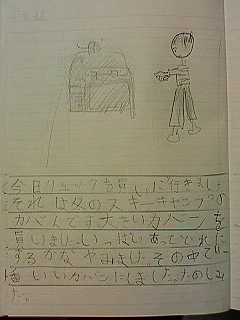 今日リュックを買いに行きました
それは冬のスキーキャンプの
カバんです大きいカバンを
買いました。いっぱいあってどれに
するかなやみました。その中で
一番いいカバンにしました。たのしみ
だ。